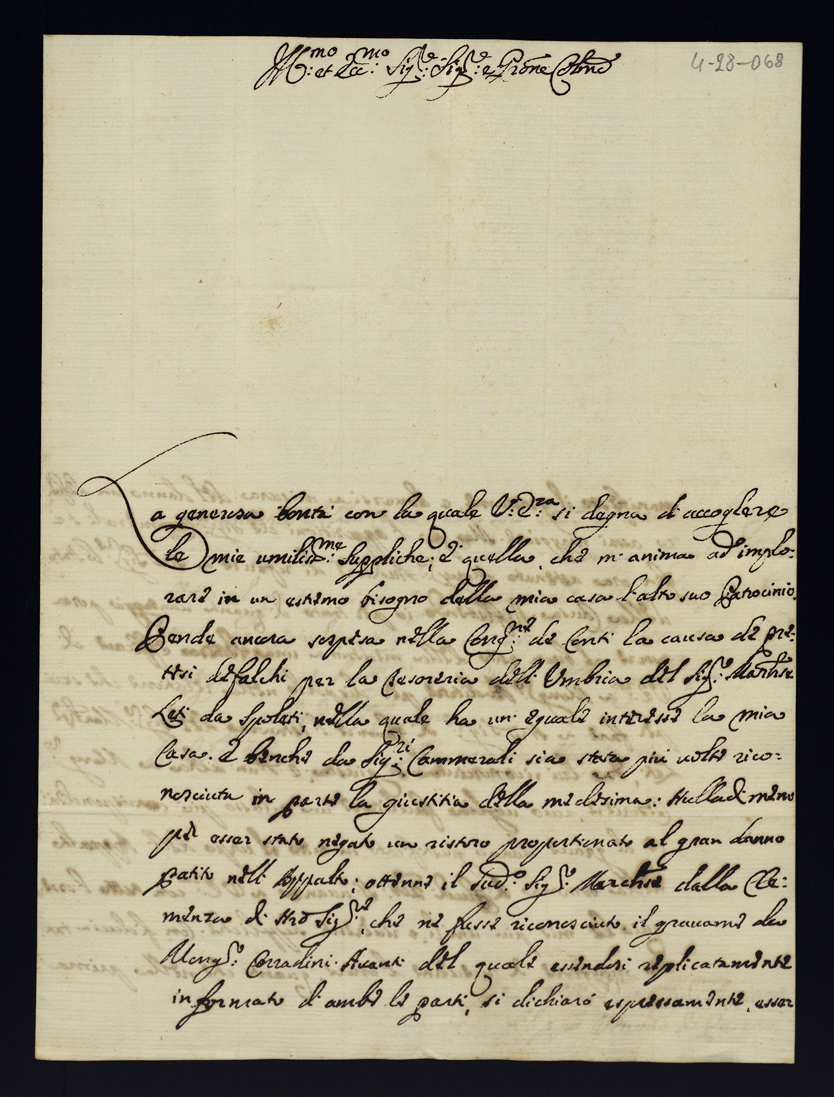 Ill:mo et Ecc:mo Sig:re Sig:re e Prone Colmo
4-28-068
La generosa bontà con la quale V: E:za si degna di accogliere
le mie umiliss:me suppliche; è quella, che m'anima ad implo-
rare in un estremo bisogno della mia casa l'alto suo Patrocinio.
Pende ancora sospesa nella Cong:ne de Conti la causa de pre-
tesi defalchi per la Tesoreria dell'Umbria del Sig:r Marchese
Leti da Spoleti, nella quale ha un'eguale interesse la mia
Casa. E benche da Sig:ri Cammerali sia stata più volte rico-
nosciuta in parte la giustitia della medesima: Nulladimeno
per esser stato negato un ristoro proportionato al gran danno
patito nell'Appalto; ottenne il sud:o Sig:r Marchese dalla Cle-
menza di Nro Sig:re, che ne fosse riconosciuto il gravame da
Monsig:r Corradini. Avanti del quale essendosi replicatamente
informato di ambe le parti, si dichiarò espressamente, esser